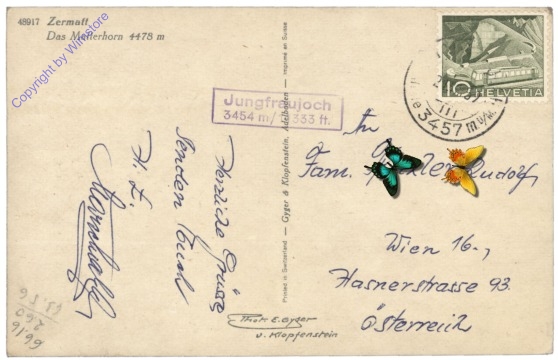 48917 Zermatt
Das Matterhorn 4478 m
Copyright by Winstore
Jungfraujoch
3454 m/ 11333 ft.
10 HELVETIA
3457 m ü/M.
Herzliche Grüsse
senden Euch
H. E.
An
Fam. Rudolf
Wien 16-,
Hasnerstrasse 93.
Österreich
Printed in Switzerland — Gyger & Klopfenstein, Adelboden — Imprimé en Suisse
Phot. E. Gyger
u. Klopfenstein
6616
260